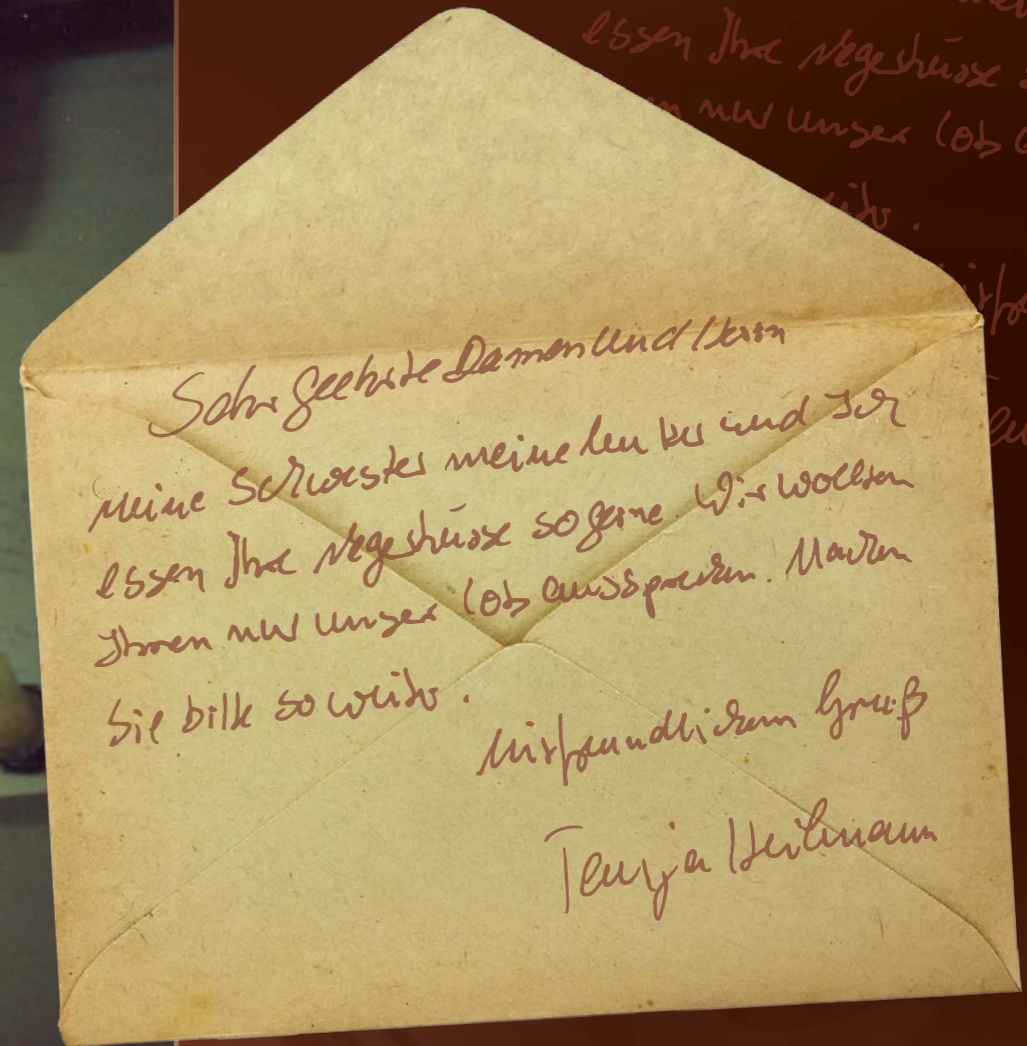 essen Ihre Negerküsse
nur unser Lob
Sehr geehrte Damen und Herrn
meine Schwester meine und Ich
essen Ihre Negerküsse so gerne Wir wollten
Ihnen nur unser Lob aussprechen. Machen
Sie bitte so weiter.
Mit freundlichem Gruß
Tanja Heilmann